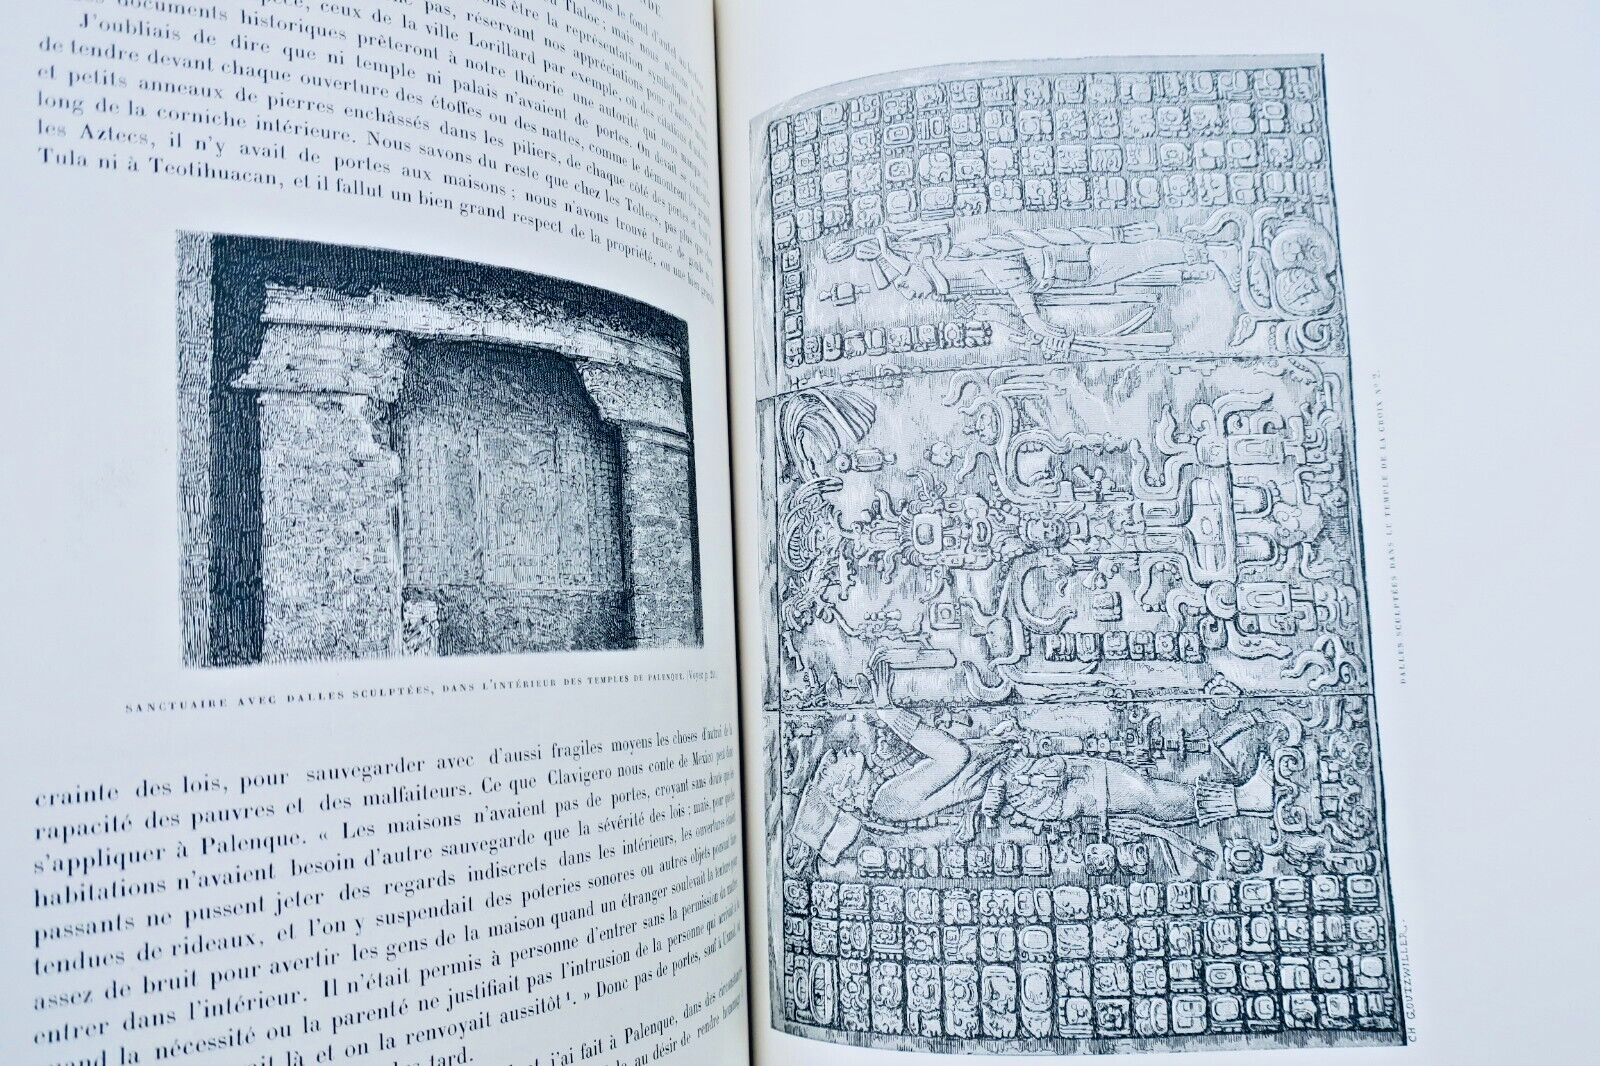 pas, réservant nos appréciations pour d'autres
documents historiques prêteront à notre théorie une autorité qui nous manque
J'oubliais de dire que ni temple ni palais n'avaient de portes. On devait se contenter
de tendre devant chaque ouverture des étoffes ou des nattes, comme le démontrent
et petits anneaux de pierres enchâssés dans les piliers, de chaque côté des portes et
long de la corniche intérieure. Nous savons du reste que chez les Toltecs, pas plus que
les Aztecs, il n'y avait de portes aux maisons; nous n'avons trouvé trace de gonds
Tula ni à Teotihuacan, et il fallut un bien grand respect de la propriété, ou une
SANCTUAIRE AVEC DALLES SCULPTÉES, DANS L'INTÉRIEUR DES TEMPLES DE PALENQUE. (Voyez p.
crainte des lois, pour sauvegarder avec d'aussi fragiles moyens les choses d'autrui de la
rapacité des pauvres et des malfaiteurs. Ce que Clavigero nous conte de Mexico peut donc
s'appliquer à Palenque. « Les maisons n'avaient pas de portes, croyant sans doute que les
habitations n'avaient besoin d'autre sauvegarde que la sévérité des lois; mais, pour que les
passants ne pussent jeter des regards indiscrets dans les intérieurs, les ouvertures étaient
tendues de rideaux, et l'on y suspendait des poteries sonores ou autres objets pouvant faire
assez de bruit pour avertir les gens de la maison quand un étranger soulevait la tenture pour
entrer dans l'intérieur. Il n'était permis à personne d'entrer sans la permission du maître
quand la nécessité ou la parenté ne justifiait pas l'intrusion de la personne qui
là et on la renvoyait aussitôt ¹. » Donc pas de portes, sauf à
tard.
j'ai fait à Palenque, dans des circonstances
au désir de rendre
DALLES SCULPTÉES DANS LE TEMPLE DE LA CROIX Nº 2.
CH GOUTZWILLER.